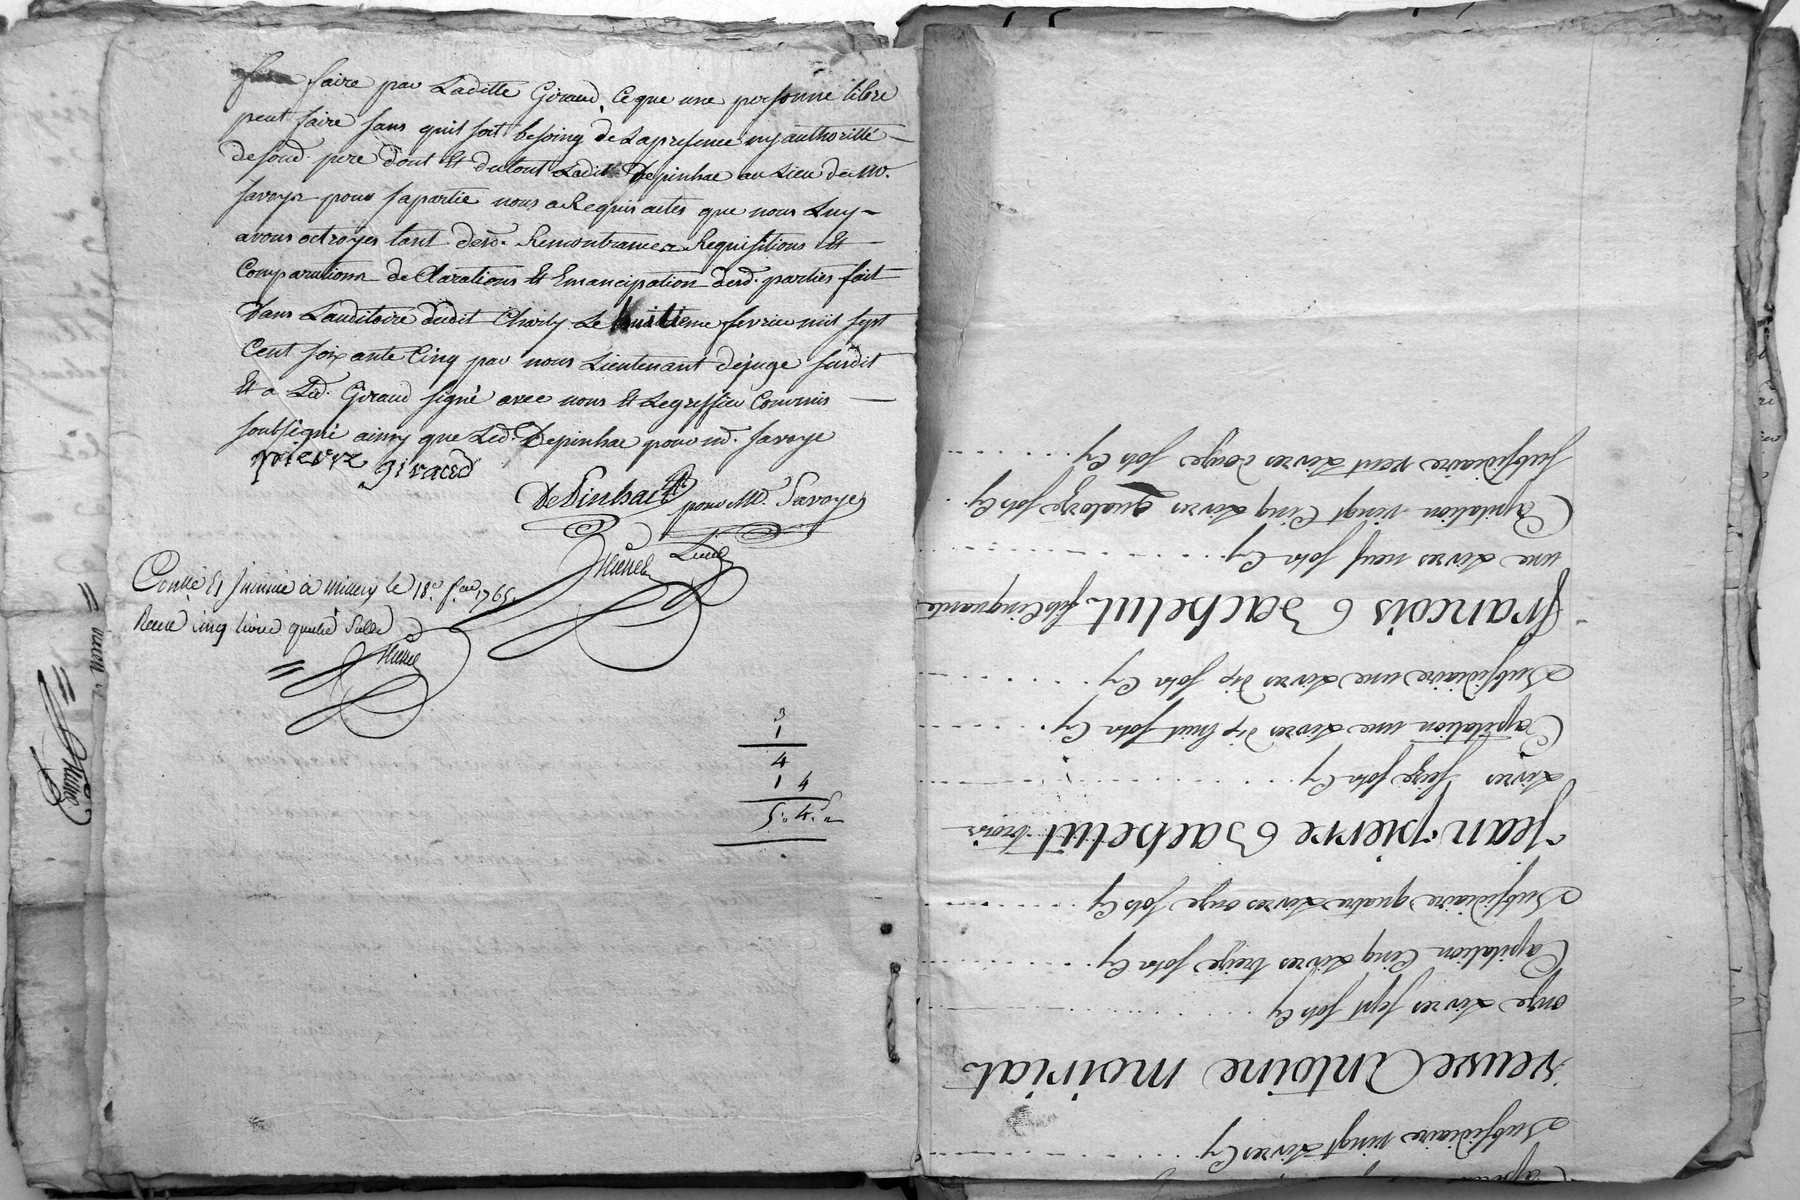 faire par Laditte Giraud, Ceque une personne libre
peut faire sans quil soit besoing de Lapresence ny authoritté
desond. pere dont Et dutout Ledit Depinhac au Lieu de M.
Savoye pour sapartie nous a Requis actes que nous Luy
avons octroyer tant desd. Remontrances Requisitions Et
Comparutions declarations Et Emancipation desd. parties fait
Dans Lauditoire dudit Charly Le huitieme fevrier mil sept
Cent soixante Cinq par nous Lieutenant dejuge susdit
Et a Led. Giraud signé avec nous Et Legreffier Commis
soubsigné ainsy que Led. Depinhac pour M. Savoye
pierre giraud
DePinhac pour M. Savoye
Conllé Et a millery le 18e. 1765
Receu cinq livres quatre sols
3
1
4
1 4
5. 4. s
Subsidiaire vingt Livres Cy
veuve Antoine moiriat
onze Livres sept sols Cy
Capitation Cinq Livres treize sols Cy
Subsidiaire quatre Livres onze sols Cy
Jean pierre Bachelut trois
Livres seize sols Cy
Capitation une Livres dix huit sols Cy
Subsidiaire une Livres dix sols Cy
francois Bachelut fils Cinquante
une Livres neuf sols Cy
Capitation vingt Cinq Livres quatorze sols Cy
Subsidiaire vent Livres douze sols Cy